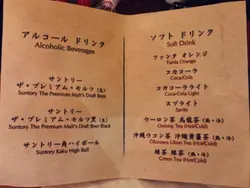 アルコール ドリンク
Alcoholic Beverages
サントリー
ザ・プレミアム・モルツ (生)
Suntory The Premium Malt's Draft Beer
サントリー
ザ・プレミアム・モルツ黒 (生)
Suntory The Premium Malt's Draft Beer Black
サントリー角ハイボール
Suntory Kaku High Ball
ソフト ドリンク
Soft Drink
ファンタ オレンジ
Fanta Orange
コカコーラ
Coca-Cola
コカコーラライト
Coca-Cola Light
スプライト
Sprite
ウーロン茶 烏龍茶 (熱・冷)
Oolong Tea (Hot/Cold)
沖縄ウコン茶 沖繩黃薑茶 (熱・冷)
Okinawa Ukon Tea (Hot/Cold)
緑茶 綠茶 (熱・冷)
Green Tea (Hot/Cold)